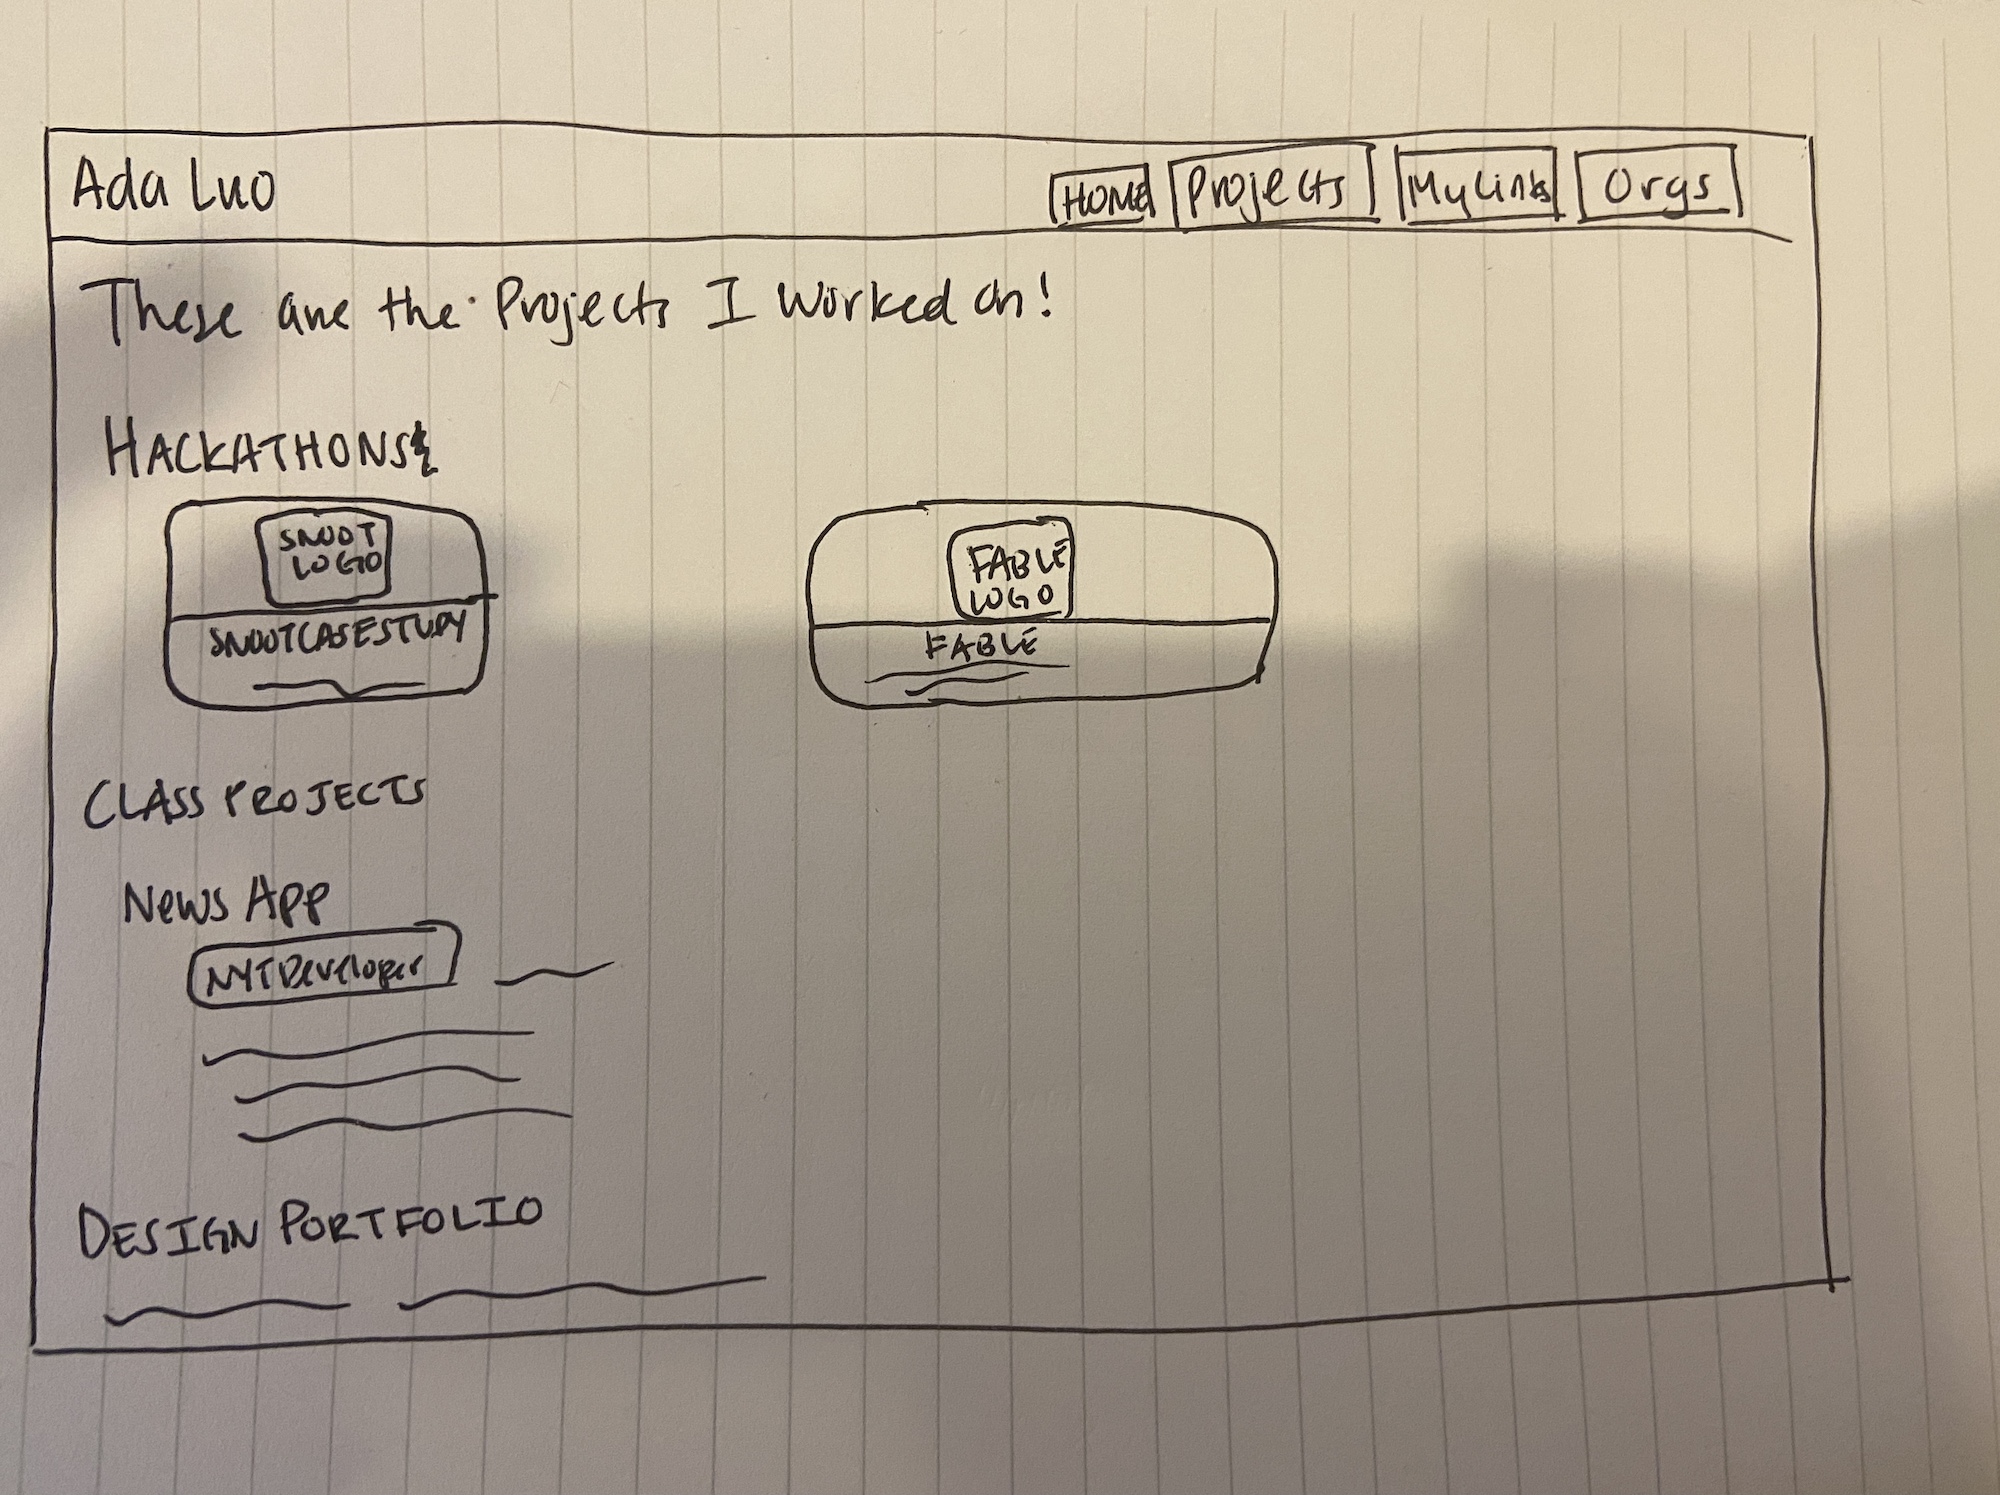 Ada Luo
HOME Projects MyLinks Orgs
These are the Projects I Worked on!
HACKATHONS
SNOOT
LOGO
SNOOTCASESTUDY
FABLE
LOGO
FABLE
CLASS PROJECTS
News App
NYTDeveloper
DESIGN PORTFOLIO